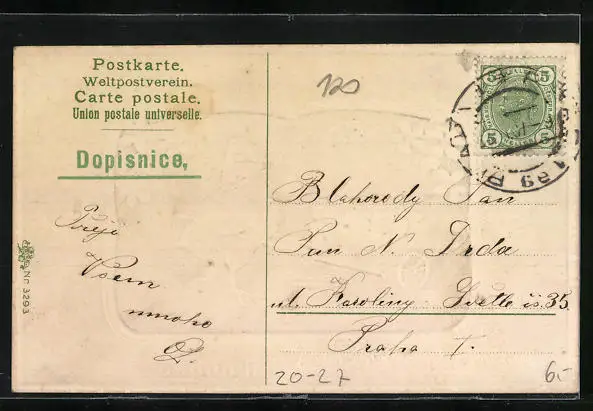 Postkarte.
Weltpostverein.
Carte postale.
Union postale universelle.
Dopisnice,
120
5 5
5 5
Přeji
Všem
mnoho
Nr. 3293
Blahorody Pan
Pan N. Trda
ul. Karoliny Světle čís 35
Praha I.
20-27
6.-